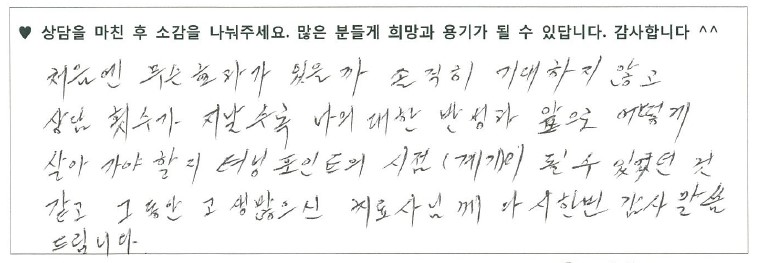 ♥ 상담을 마친 후 소감을 나눠주세요. 많은 분들게 희망과 용기가 될 수 있답니다. 감사합니다 ^^
처음엔 무슨 효과가 있을까 솔직히 기대하지 않고
상담 횟수가 지날수록 나의 대한 반성과 앞으로 어떻게
살아 가야 할지 터닝포인트의 시점(계기)이 될 수 있었던 것
같고 그동안 고생많으신 치료사님께 다시한번 감사 말씀
드립니다.